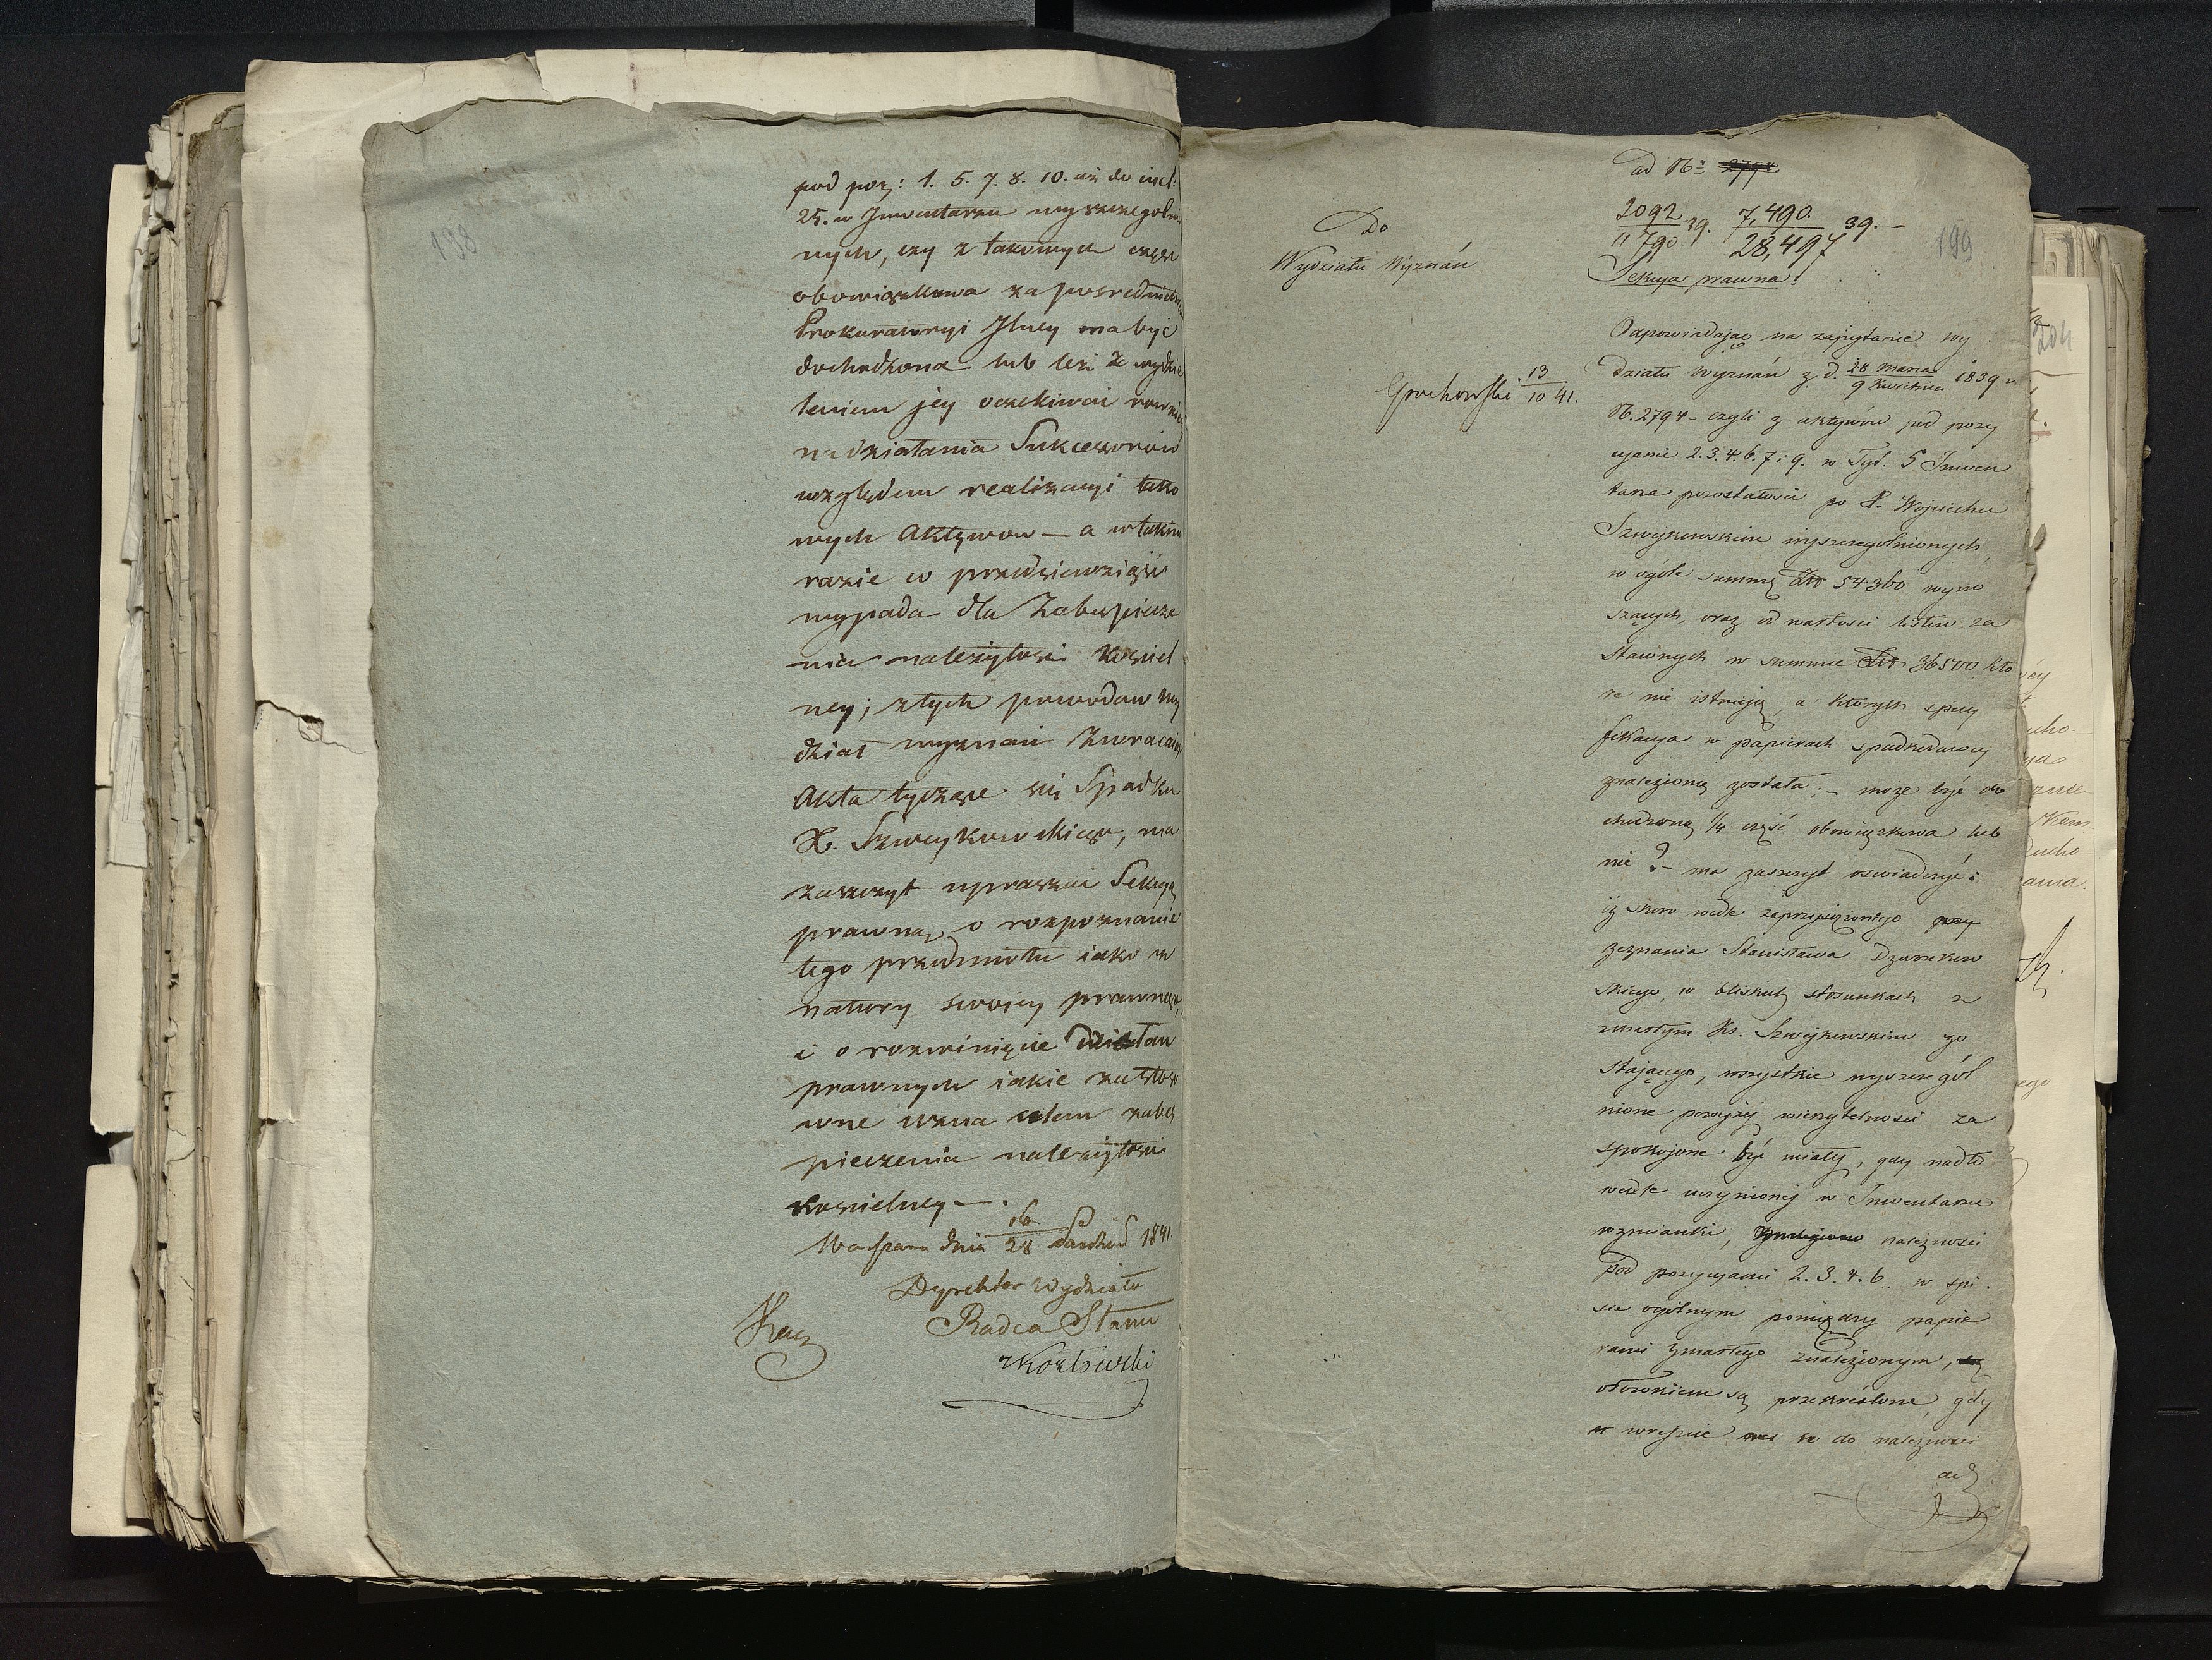 198
pod poz: 1. 5. 7. 8. 10. aż do incl:
25. w Inwentarzu wyszczegolnio
nych, czy z takowych część
obowiązkowa za pośrednictwem
Prokuratoryi Jlney ma być
dochodzona lub też z wydzie
leniem jey oczekiwać
na działania Sukcessorów
względem realizacyi tako
wych Aktywow — a w takim
razie co przedsiewziąść
wypada dla Zabezpiecze
nia należytości Kościel
ney; z tych powodow Wy
dział wyznań zwracaiąc
Akta tyczące się Spadku
X. Szweykowskiego, ma
zaszczyt upraszać Sekcyą
prawną o rozpoznanie
tego przedmiotu iako z
natury swojey prawnego,
i o rozwinięcie Działań
prawnych iakie za stoso
wne uzna celem zabez
pieczenia należytości
kościelney —.
Warszawa dnia 16/28 1841.
Dyrektor Wydziału
Radca Stanu
Kozłowski
ad N: 2794.
2092/11790 39. 7,490./28,497 39. —
199
Do
Wydziału Wyznań
Sekcya prawna!
Grochowski 13/10 41.
Odpowiadając na zapytanie Wy
działu Wyznań z d. 28 Marca/9 Kwietnia 1839 r
N. 2794 — czyli z aktywów pod pozy
cyami 2. 3. 4. 6. 7 i 9. w Tyt. 5 Inwen
tarza pozostałości po X. Wojciechu
Szwejkowskim wyszczególnionych,
w ogóle summę Złt 54360 wyno
szących, oraz od wartości listów za
stawnych w summie Złt 36500, któ
re nie istnieją, a których specy
fikacya w papierach spadkodawcy
znalezioną została; — może być do
chodzoną 1/4 część obowiązkowa lub
nie? — ma zaszczyt oświadczyć:
iż skoro wedle zaprzysiężonego
zeznania Stanisława
skiego, w bliskich stosunkach z
zmarłym Ks. Szwejkowskim zo
stającego, wszystkie wyszczegól
nione powyżej wierzytelności za
spokojone być miały, gdy nadto
wedle uczynionej w Inwentarzu
wzmianki, należności
pod pozycyami 2. 3. 4. 6. w spi
sie ogólnym pomiędzy papie
rami zmarłego znalezionym,
ołówkiem są przekreślone, gdy
wreszcie co do należności